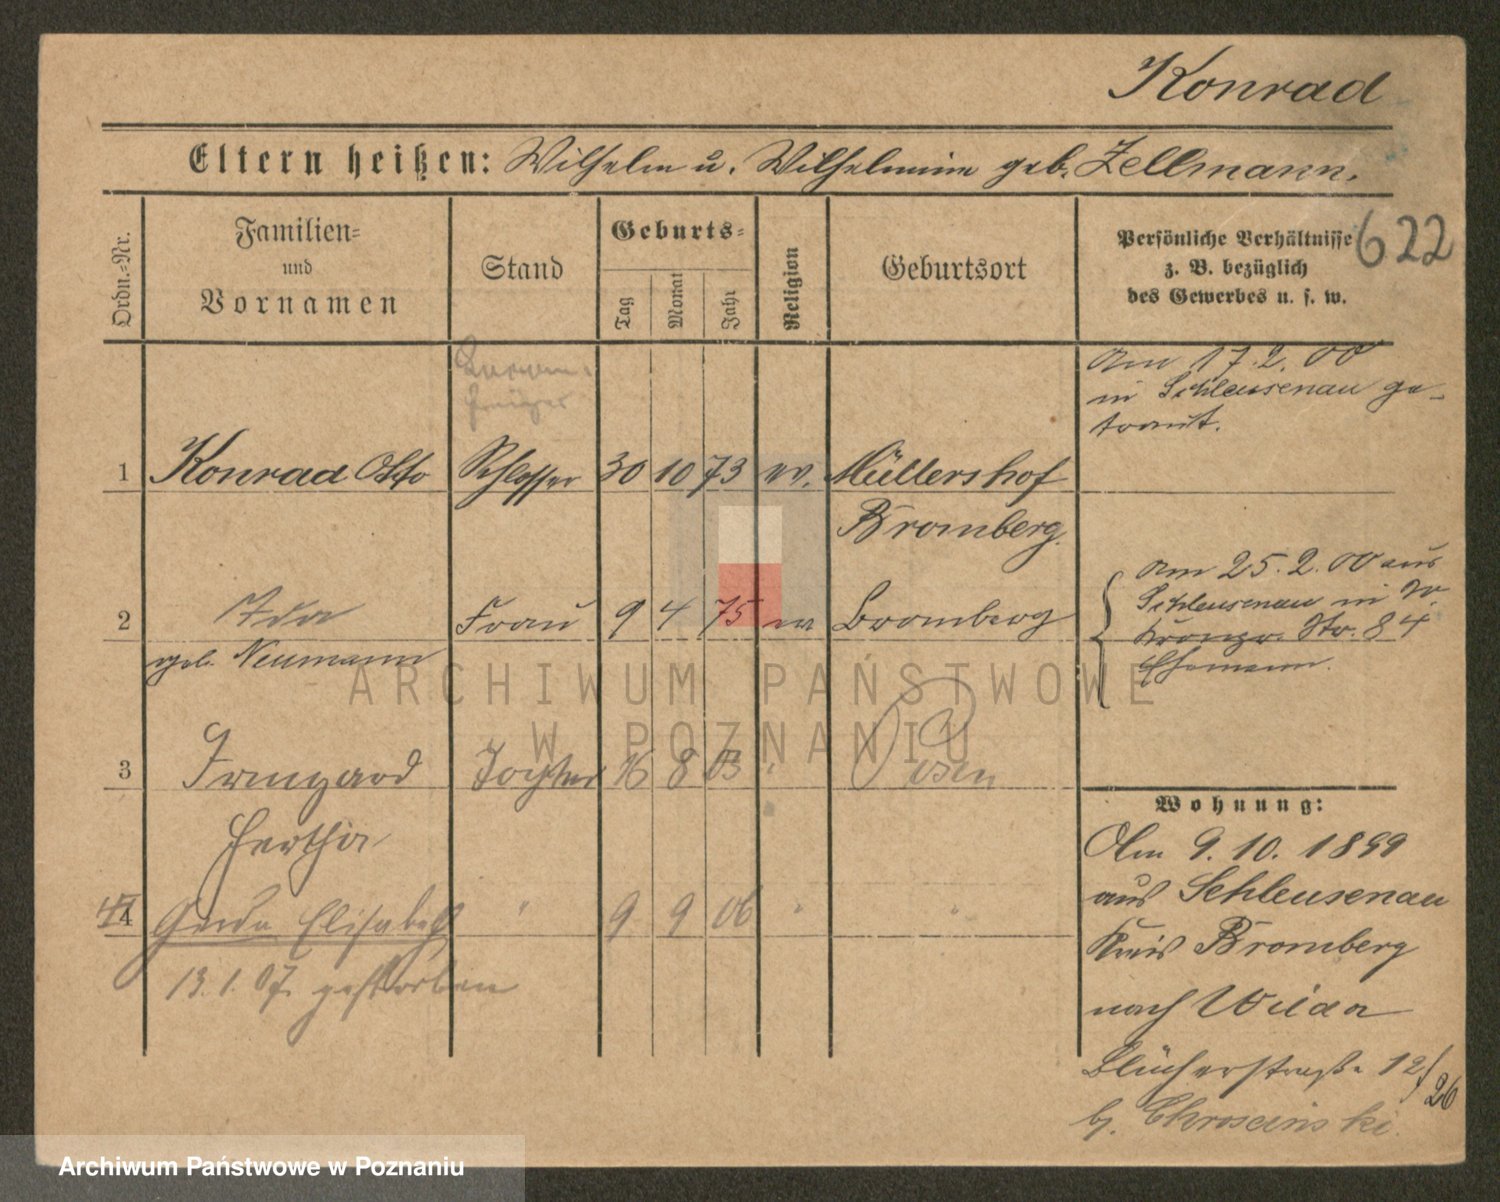 Konrad
Eltern heißen: Wilhelm u. Wilhelmine geb. Zellmann.
622
Ordn.=Nr.
Familien=
und
Vornamen
Stand
Geburts=
Tag
Monat
Jahr
Religion
Geburtsort
Persönliche Verhältnisse
z. B. bezüglich
des Gewerbes u. s. w.
Am 17.2.00
in Schleusenau ge-
traut.
1 Konrad Otto Schlosser 30 10 73 ev. Müllershof
Bromberg.
Am 25.2.00 aus
Schleusenau in W.
Kronpr. Str. 84
Ehemann.
2 Ida Frau 9 4 75 ev Bromberg
geb. Neumann
3 Irmgard Tochter 16 8 03 " Posen
Hertha
4 Gerda Elisabeth " 9 9 06 " "
13.1.07. gestorben
Wohnung:
Am 9.10.1899
aus Schleusenau
Kreis Bromberg
nach Wilda
Blücherstraße 12/26
b. Chroscinski.
ARCHIWUM PAŃSTWOWE
W POZNANIU
Archiwum Państwowe w Poznaniu